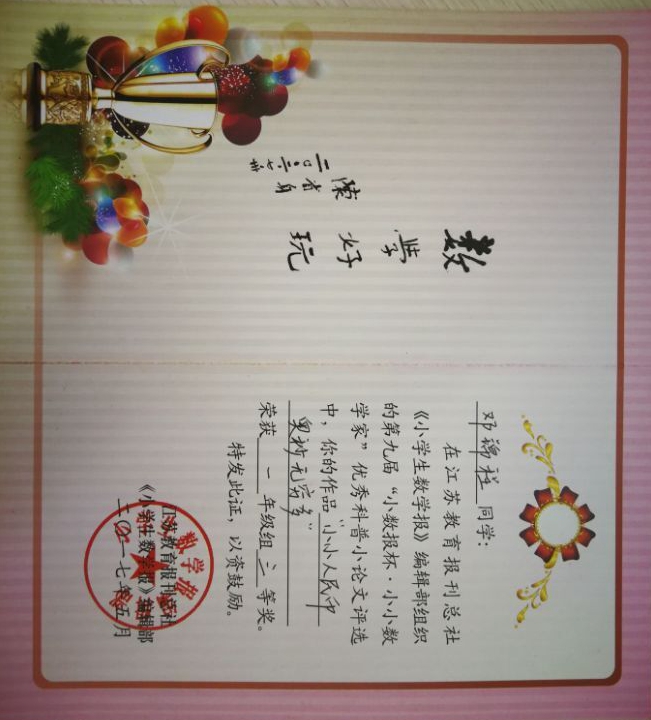 数学好玩
陳省身
邓 同学：
在江苏教育报刊总社
《小学生数学报》编辑部组织
的第九届“小数报杯·小小数
学家”优秀科普小论文评选
中，你的作品“小小人民币
奥妙无穷多”
荣获一年级组二等奖。
特发此证，以资鼓励。
江苏教育报刊总社
《小学生数学报》编辑部
二〇一七年五月